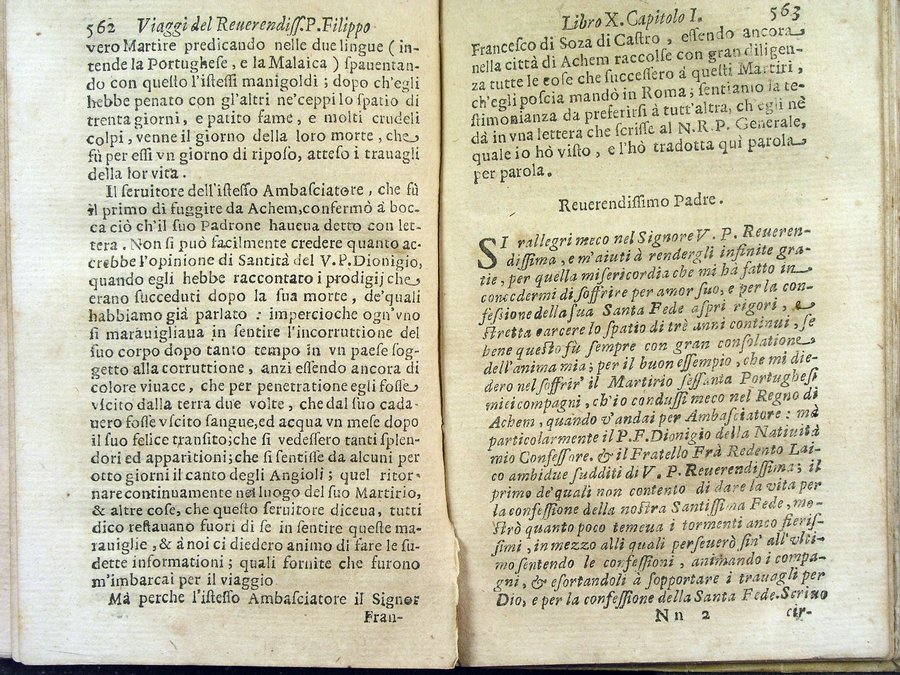 562 Viaggi del Reuerendiſſ. P. Filippo
vero Martire predicando nelle due lingue ( in-
tende la Portughese, e la Malaica ) ſpauentan-
do con queſto l'iſteſſi manigoldi ; dopo ch'egli
hebbe penato con gl'altri ne'ceppi lo ſpatio di
trenta giorni, e patito fame, e molti crudeli
colpi, venne il giorno della loro morte, che
fù per eſſi vn giorno di ripoſo, atteſo i trauagli
della lor vita.
Il ſeruitore dell'iſteſſo Ambaſciatore, che fù
il primo di fuggire da Achem, confermò a boc-
ca ciò ch'il ſuo Padrone haueua detto con let-
tera. Non ſi può facilmente credere quanto ac-
crebbe l'opinione di Santità del V. P. Dionigio,
quando egli hebbe raccontato i prodigij che
erano ſucceduti dopo la ſua morte, de'quali
habbiamo già parlato : impercioche ogn'vno
ſi marauigliaua in ſentire l'incorruttione del
ſuo corpo dopo tanto tempo in vn paeſe ſog-
getto alla corruttione, anzi eſſendo ancora di
colore viuace, che per penetratione egli foſſe
vſcito dalla terra due volte, che dal ſuo cada-
uero foſſe vſcito sangue, ed acqua vn meſe dopo
il ſuo felice tranſito; che ſi vedeſſero tanti ſplen-
dori ed apparitioni; che ſi ſentiſſe da alcuni per
otto giorni il canto degli Angioli ; quel ritor-
nare continuamente nel luogo del ſuo Martirio,
& altre coſe, che queſto ſeruitore diceua, tutti
dico reſtauano fuori di ſe in ſentire queſte ma-
rauiglie, & à noi ci diedero animo di fare le ſu-
dette informationi ; quali fornite che furono
m'imbarcai per il viaggio
Mà perche l'iſteſſo Ambaſciatore il Signor
Fran-
Libro X. Capitolo I. 563
Franceſco di Soza di Caſtro, eſſendo ancora
nella città di Achem raccolſe con gran diligen-
za tutte le coſe che ſucceſſero a queſti Martiri,
ch'egli poſcia mandò in Roma; ſentiamo la te-
ſtimonianza da preferirſi à tutt'altra, ch'egli nè
dà in vna lettera che ſcriſſe al N. R. P. Generale,
quale io hò viſto, e l'hò tradotta quì parola
per parola.
Reuerendiſſimo Padre.
SI rallegri meco nel Signore V. P. Reueren-
diſſima, e m'aiuti à rendergli infinite gra-
tie, per quella miſericordia che mi hà fatto in
concedermi di ſoffrire per amor ſuo, e per la con-
feſſione della ſua Santa Fede aſpri rigori, e
ſtretta carcere lo ſpatio di trè anni continui, ſe
bene queſto fù ſempre con gran conſolatione
dell'anima mia; per il buon eſſempio, che mi die-
dero nel ſoffrir' il Martirio ſeſſanta Portugheſi
miei compagni, ch'io conduſſi meco nel Regno di
Achem, quando v'andai per Ambaſciatore : mà
particolarmente il P. F. Dionigio della Natiuità
mio Confeſſore, & il Fratello Frà Redento Lai-
co ambidue ſudditi di V. P. Reuerendiſſima; il
primo de'quali non contento di dare la vita per
la confeſſione della noſtra Santiſſima Fede, mo-
ſtrò quanto poco temeua i tormenti anco fieriſ-
ſimi, in mezzo alli quali perſeuerò ſin' all'vlti-
mo ſentendo le confeſſioni, animando i compa-
gni, & eſortandoli à ſopportare i trauagli per
Dio, e per la confeſſione della Santa Fede. Scriuo
Nn 2 cir-